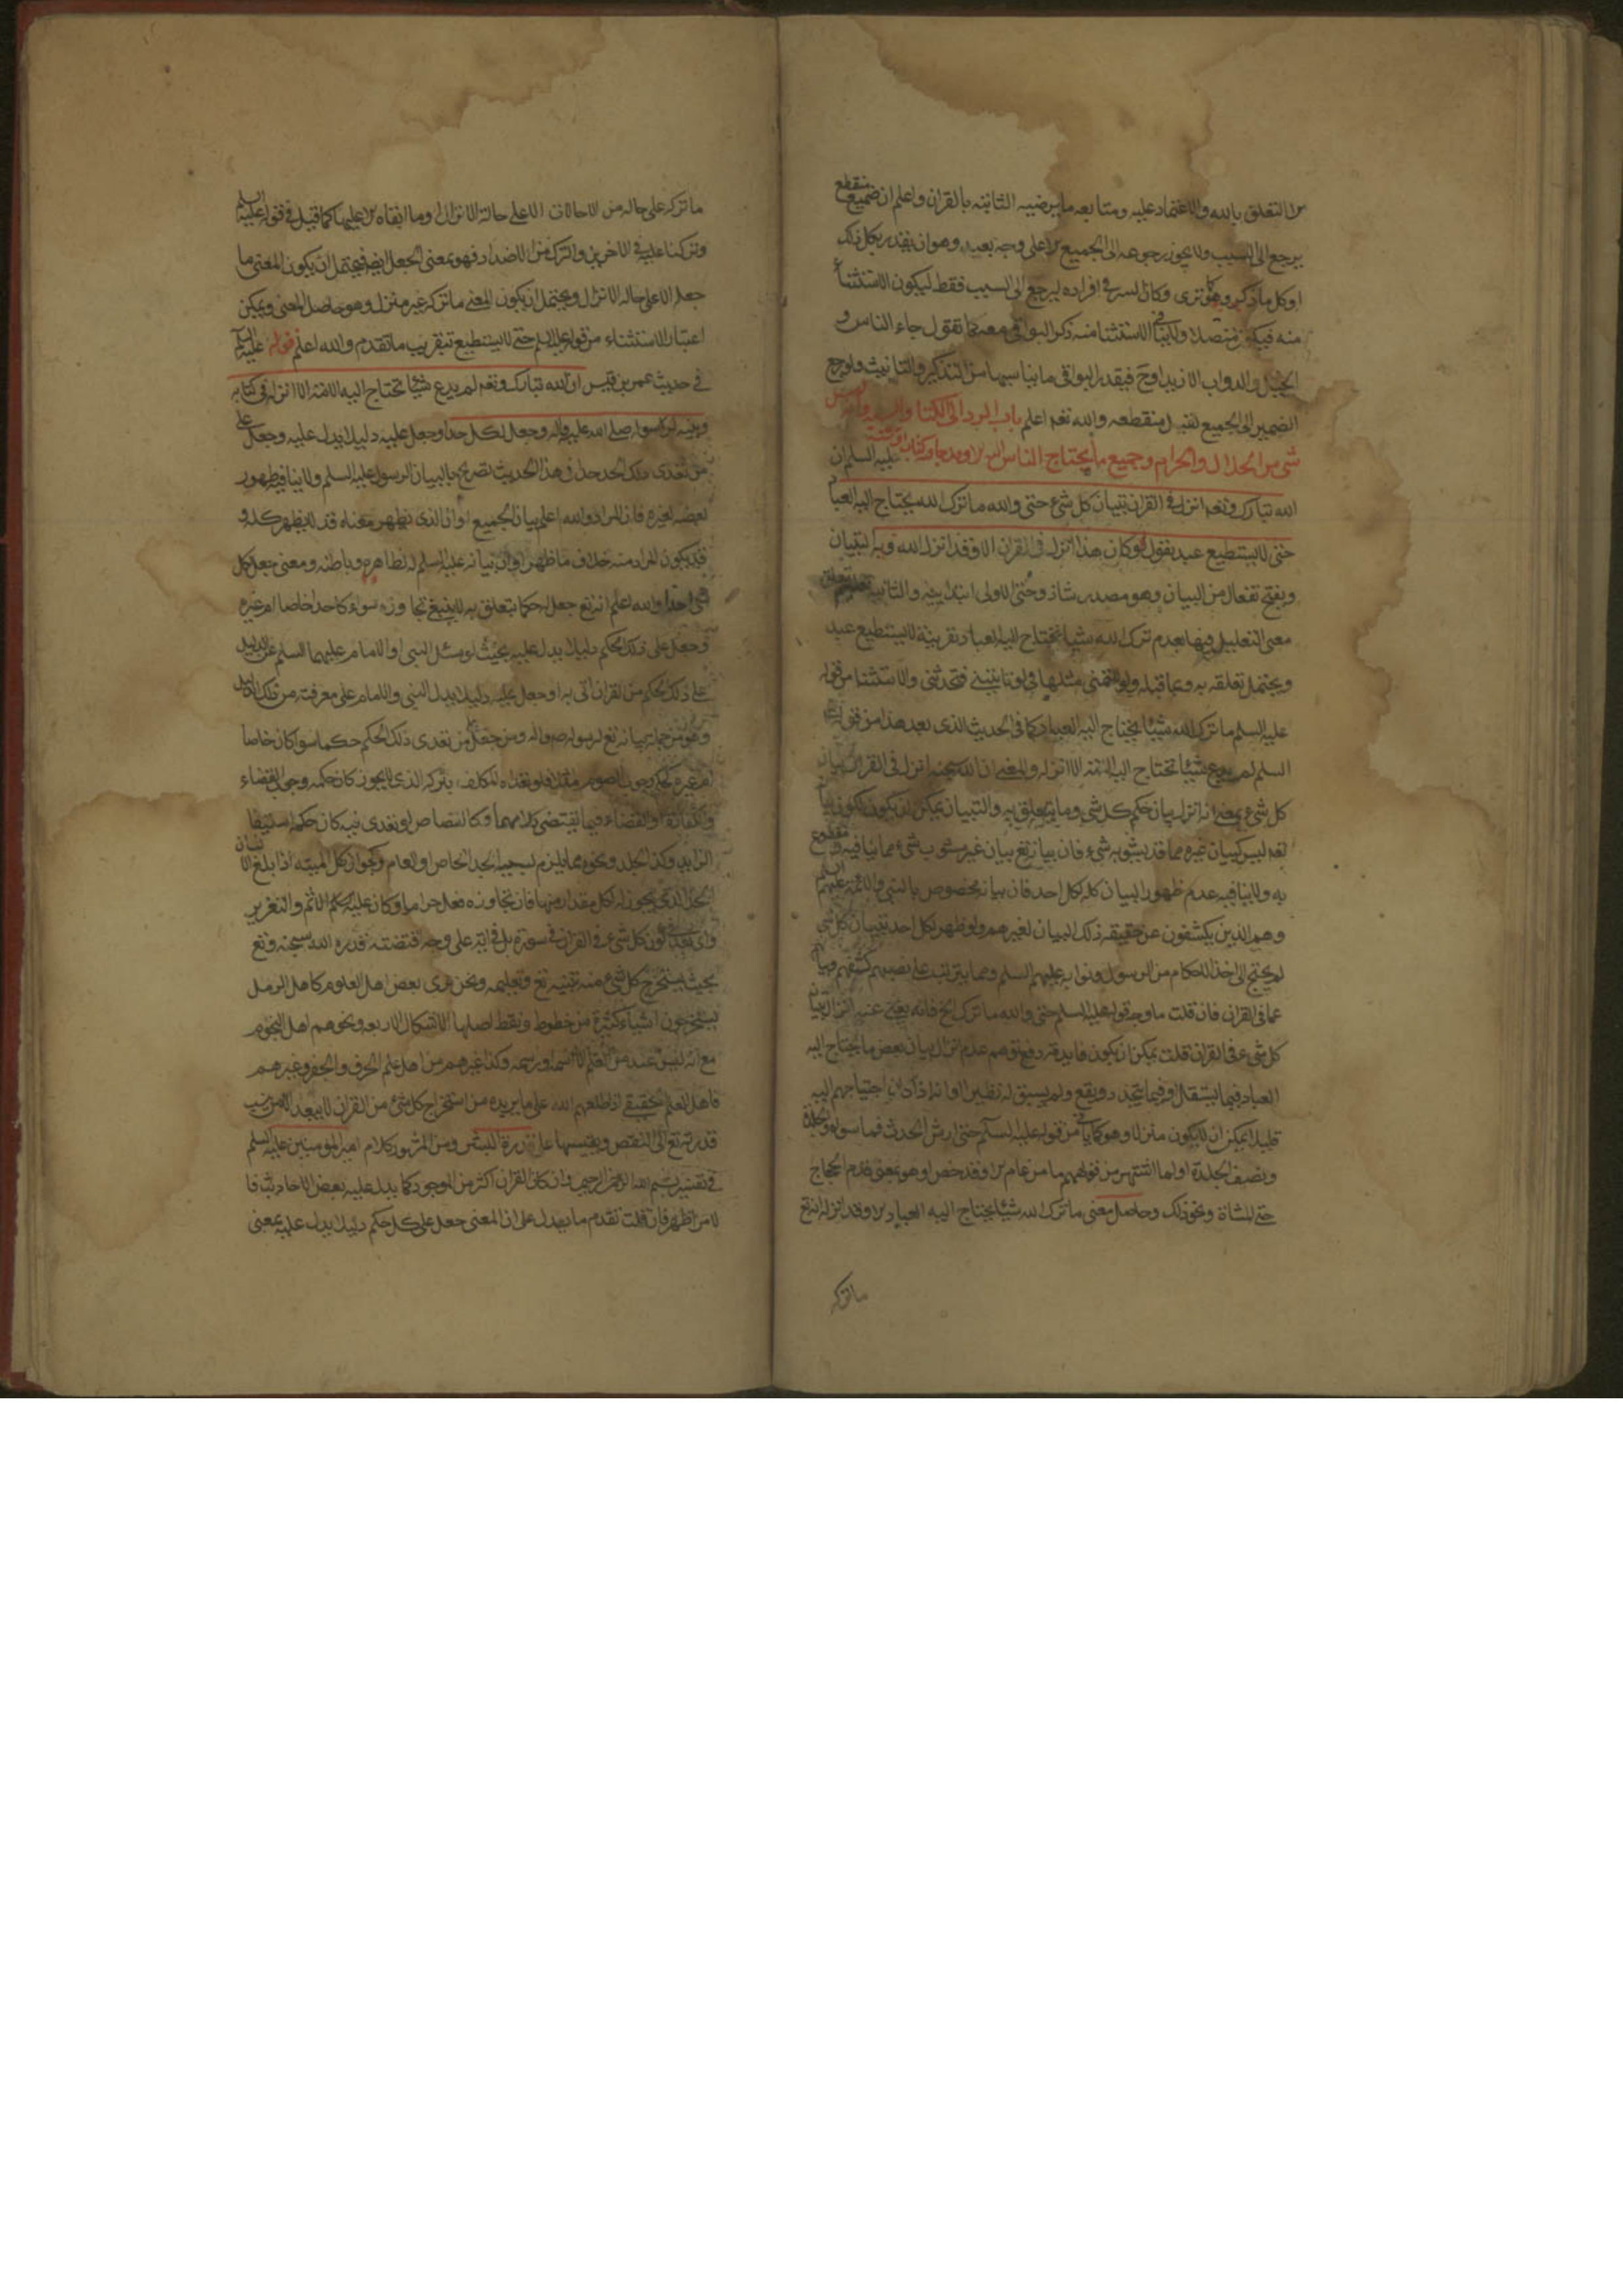 من التعلق بالله والاعتماد عليه ومتابعه ما يرضيه الثابته بالقران واعلم ان ضمير منقطع
يرجع الى السبب ولا يجوز رجوعه الى الجميع الا على وجه بعيد وهو ان يقدر بكل ذلك
او كل ما ذكر وهو كما ترى وكان السر في افراده ليرجع الى السبب فقط ليكون الاستثناء
منه فيكون متصلا ولا ينافي الاستثنا منه ذكر البواقي معه كما تقول جاء الناس و
الخيل والدواب الا زيدا وح فيقدر البواقي ما يناسبها من التذكير والتانيث ولو رجع
الضمير الى الجميع لقيل منقطعه والله تعه اعلم باب الرد الى الكتاب والسنه وانه ليس
شى من الحلال والحرام وجميع ما يحتاج الناس اليه الا وقد جاء فيه كتاب او سنة عليه السلم ان
الله تبارك وتعه انزل في القران تبيان كل شئ حتى والله ما ترك الله يحتاج اليه العباد
حتى لا يستطيع عبد يقول لو كان هذا انزل في القران الا وقد انزل الله فيه التبيان
وبفتح تفعال من البيان وهو مصدر شاذ وحتى الاولى ابتدائيه والثانيه
معنى التعليل فيها بعدم ترك الله شيئا يحتاج اليه العباد بقرينة لا يستطيع عبد
ويحتمل تعلقه به وبما قبله ولو للتمني مثلها في لو تاتيني فتحدثني والاستثنا من قوله
عليه السلم ما ترك الله شيئا يحتاج اليه العباد كما في الحديث الذى بعد هذا من قوله عليه
السلم لم يدع شيئا تحتاج اليه الامة الا انزله والمعنى ان الله سبحانه انزل في القران بيان
كل شئ بمعنى انه انزل بيان حكم كل شى وما يتعلق به والتبيان يمكن ان يكون لكون بيانه
تعه ليس كبيان غيره مما قد يشوبه شىء فان بيانه تع بيان غير مشوب بشىء مما ينافيه ومقطوع
به ولا ينافيه عدم ظهور البيان كله لكل احد فان بيانه مخصوص بالنبي والائمة عليهم السلم
وهم الذين يكشفون عن حقيقه ذلك البيان لغيرهم ولو ظهر لكل احد تبيان كل شى
لم يحتج الى اخذ الاحكام من الرسول ونوابه عليهم السلم ومما يترتب على نصبهم كشفهم وبيانهم
عما في القران فان قلت ما وجه قوله عليه السلم حتى والله ما ترك الخ فانه يغنى عنه انزال تبيان
كل شئ في القران قلت يمكن ان يكون فايدته دفع توهم عدم انزال بيان بعض ما يحتاج اليه
العباد فيما يستقل او فيما يتجدد ويقع ولم يسبق له نظير او انه اذا كان احتياجهم اليه
قليلا يمكن ان لا يكون منزلا وهو كما ياتي من قوله عليه السلم حتى ارش الخدش فما سواه والجلدة
ونصف الجلدة او لما اشتهر من قولهم ما من عام الا وقد خص او هو بمعنى قدم الحجاج
حتى المشاة ونحو ذلك وحاصل معنى ما ترك الله شيئا يحتاج اليه العباد الا وقد انزله انه تع
ما تركه
ما تركه على حاله من الاحالات الا على حالة الانزال وما ابقاه الا عليها كما قيل في قوله عليه السلم
وتركنا عليه في الاخرين والترك من الاضداد فهو بمعنى الجعل ايضا فيحتمل ان يكون المعنى ما
جعله الا على حاله الانزال ويحتمل ان يكون المعنى ما تركه غير منزل وهو حاصل المعنى ويمكن
اعتبار الاستثناء من قوله عليه السلم حتى لا يستطيع بتقريب ما تقدم والله اعلم قوله عليه السلم
في حديث عمر بن قيس ان الله تبارك وتعه لم يدع شيئا تحتاج اليه الامة الا انزله في كتابه
وبينه لرسوله صلى الله عليه واله وجعل لكل حدا وجعل عليه دليلا يدل عليه وجعل على
من تعدى ذلك الحد حدا في هذا الحديث تصريح بالبيان للرسول عليه السلم ولا ينافيه ظهور
بعضه لغيره فان المراد والله اعلم بيان الجميع او ان الذى يظهر معناه قد لا يظهر كله و
قد يكون المراد منه خلاف ما ظهر او ان بيانه عليه السلم لظاهره وباطنه ومعنى جعل لكل
شى حدا والله اعلم انه تع جعل له حكما يتعلق به لا ينبغي تجاوزه سواء كان حدا خاصا ام غيره
وجعل على ذلك الحكم دليلا يدل عليه بحيث لو سئل النبى او الامام عليهما السلم عن الدليل
على ذلك الحكم من القران اتى به او جعل عليه دليلا يدل النبى والامام على معرفته من ذلك الدليل
وهو من جملة بيانه تع لرسوله ص واله ومن جعل من تعدى ذلك الحكم حكما سوا كان خاصا
ام غيره كحكم وجوب الصوم مثلا فلو تعداه المكلف بتركه الذى لا يجوز كان حكمه وجوب القضاء
والكفارة او القضاء فيما يقتضى كلا منهما وكالقصاص لو تعدى فيه كان حكمه استيفا
الزايد وكذا الجلد ونحوه مما يلزم بسببه الحد الخاص او العام وكجواز اكل الميته اذا بلغ الانسان
الحد الذى يجوز له اكل مقدار منها فان تجاوزه فعل حراما وكان عليه حكم الاثم والتعزير
واى بعد في كون كل شئ في القران في سورة بل في ايه على وجه اقتضته قدره الله سبحنه وتع
بحيث يستخرج كل شئ منه بتنبيه تع وتعليمه ونحن نرى بعض اهل العلوم كاهل الرمل
يستخرجون اشياء كثيرة من خطوط ونقط اصلها الاشكال الاربعه ونحوهم اهل النجوم
مع انه ليس عندهم من العلم الا اسمه ورسمه وكذا غيرهم من اهل علم الحرف والجفر وغيرهم
فاهل العلم الحقيقي اذا طلعهم الله على ما يريده من استخراج كل شئ من القران لا يبعده الا من ينسب
قدرته تع الى النقص ويقيسها على قدرة البشر ومن المشهور كلام امير المؤمنين عليه السلم
في تفسير بسم الله الرحمن الرحيم وان كان القران اكثر من الموجود كما يدل عليه بعض الاحاديث فا
لامر اظهر فان قلت تقدم ما يدل على ان المعنى جعل على كل حكم دليلا يدل عليه بمعنى